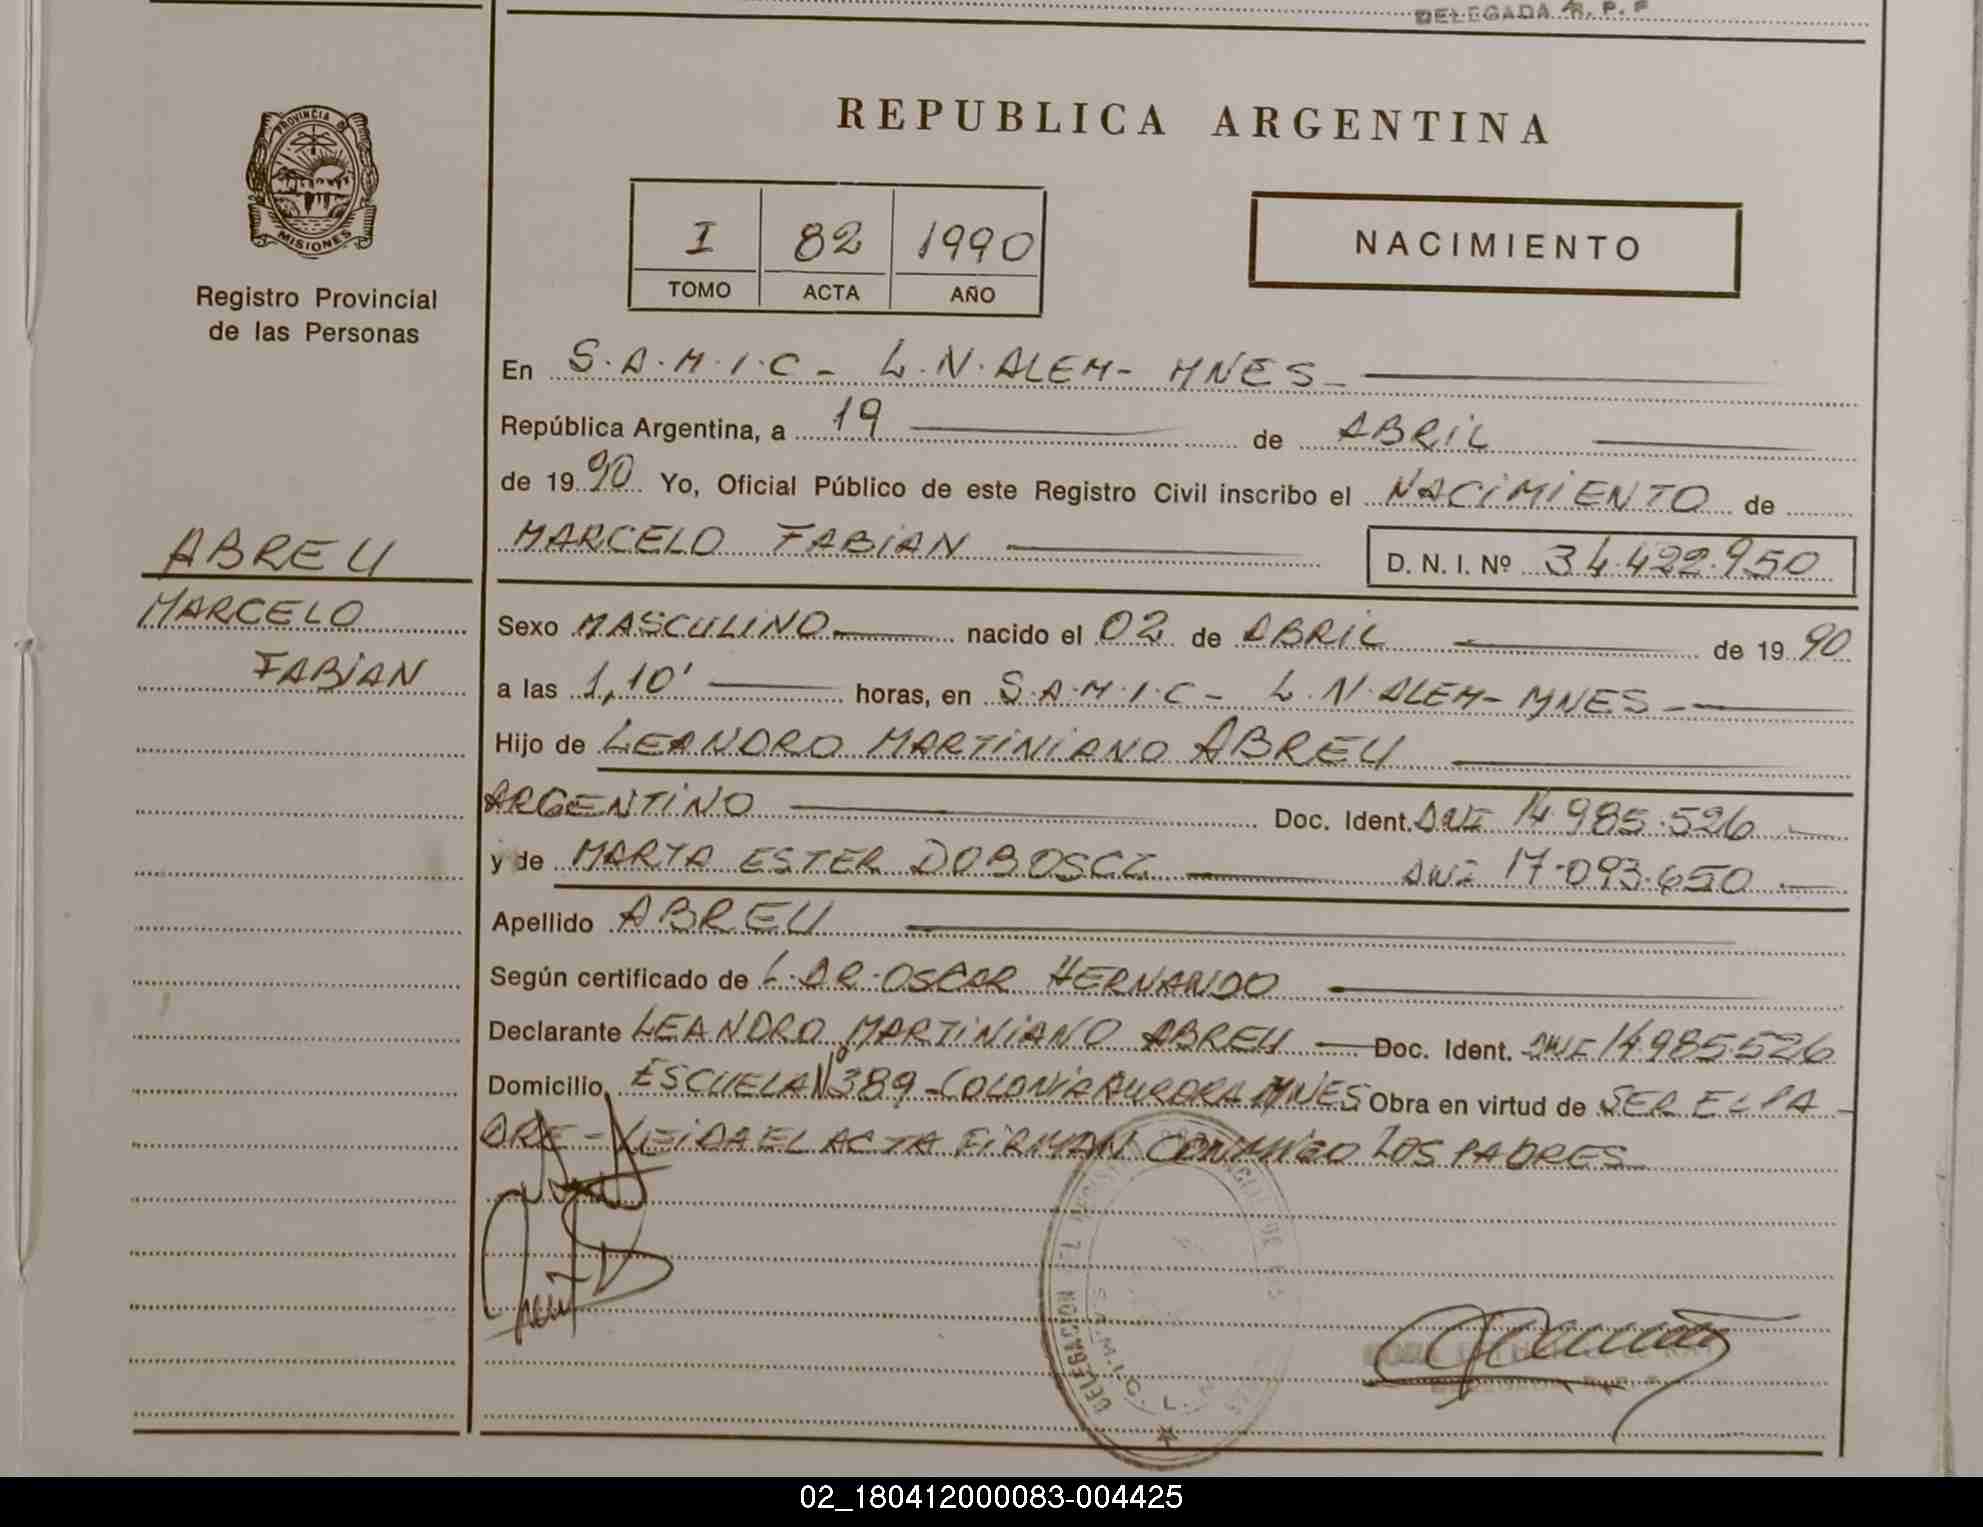 DELEGADA R. P. P
PROVINCIA DE
MISIONES
Registro Provincial
de las Personas
REPUBLICA ARGENTINA
I 82 1990
TOMO ACTA AÑO
NACIMIENTO
En S.A.M.I.C - L.N.ALEM- MNES -
República Argentina, a 19 de ABRIL
de 1990 Yo, Oficial Público de este Registro Civil inscribo el NACIMIENTO de
MARCELO FABIAN D. N. I. Nº 34.422.950
ABREU
MARCELO
FABIAN
Sexo MASCULINO nacido el 02 de ABRIL de 1990
a las 1,10' horas, en S.A.M.I.C - L.N.ALEM- MNES -
Hijo de LEANDRO MARTINIANO ABREU
ARGENTINO Doc. Ident. DNI 14.985.526
y de MARTA ESTER DOBOSCZ DNI 17.093.650
Apellido ABREU
Según certificado de L.DR.OSCAR HERNANDO
Declarante LEANDRO MARTINIANO ABREU Doc. Ident. DNI 14.985.526
Domicilio ESCUELA Nº 389 - COLONIA AURORA MNES Obra en virtud de SER EL PA-
DRE - LEIDA EL ACTA FIRMAN CONMIGO LOS PADRES
DELEGACION DEL
S.A.M.I.C. L.N.
02_180412000083-004425